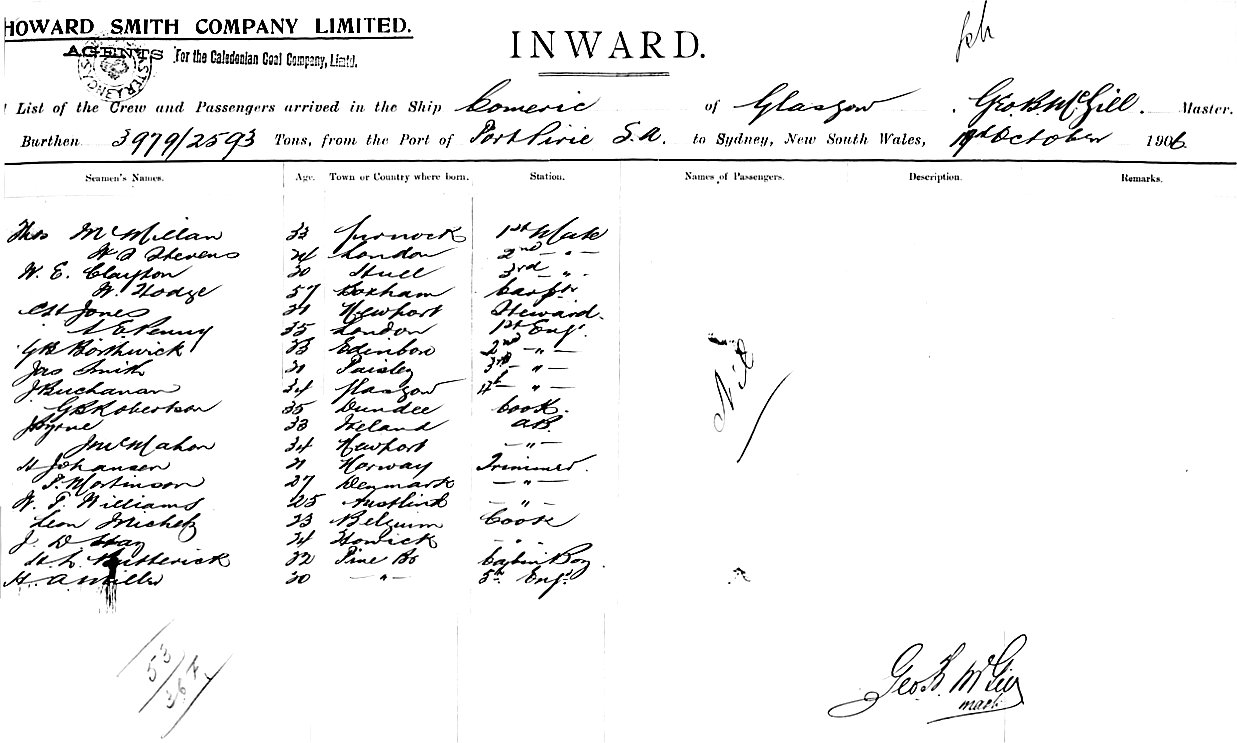 HOWARD SMITH COMPANY LIMITED.
AGENTS For the Caledonian Coal Company, Limtd.
INWARD.
List of the Crew and Passengers arrived in the Ship Comeric of Glasgow. Geo. B. McGill. Master.
Burthen 3979/2593 Tons, from the Port of Port Pirie S.A. to Sydney, New South Wales, October 1906.
Seamen's Names. Age. Town or Country where born. Station. Names of Passengers. Description. Remarks.
Thos McMillan 33 1st Mate
Stevens 24 London 2nd — " —
W. E. Clayton 30 Hull 3rd — " —
W. Hodge 57 Carptr
Jones 31 Newport Steward.
Penny 35 London 1st Eng.
G B Borthwick 33 Edinboro 2nd — " —
Jas Smith 31 Paisley 3rd — " —
J Buchanan 34 Glasgow 4th — " —
G B Robertson 35 Dundee Cook.
J Byrne 33 Ireland AB.
J McMahon 34 Newport — " —
H Johansen 21 Norway Trimmer.
Mortinson 27 Denmark — " —
W. T. Williams 25 — " —
Leon 23 Belgium
J. D Hay 24 Howick
32 Cabin Boy.
H A Miller 30 — " — 5th Eng.
Nil
53
36
Geo. B. McGill
mast